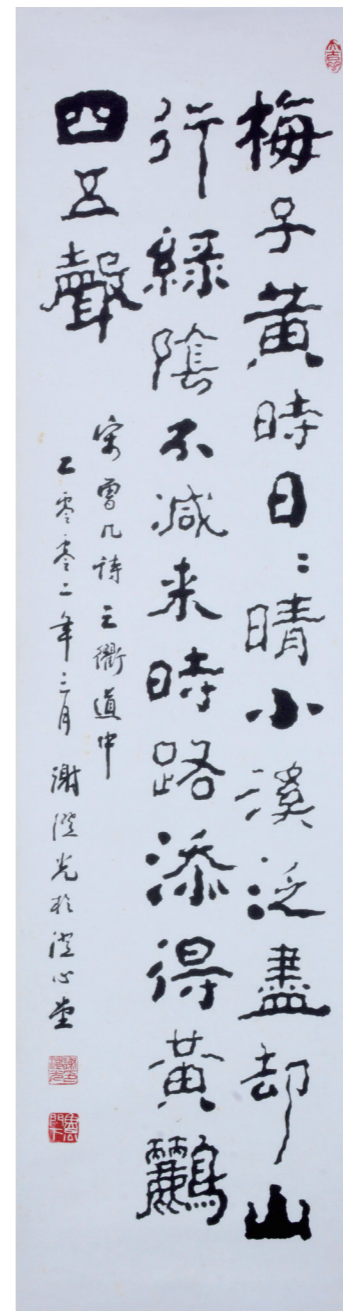 梅子黄時日〻晴小溪泛盡却山
行綠陰不減来時路添得黄鸝
四五聲
宋曾几诗三衢道中
二零零二年三月谢澄光於澄心堂